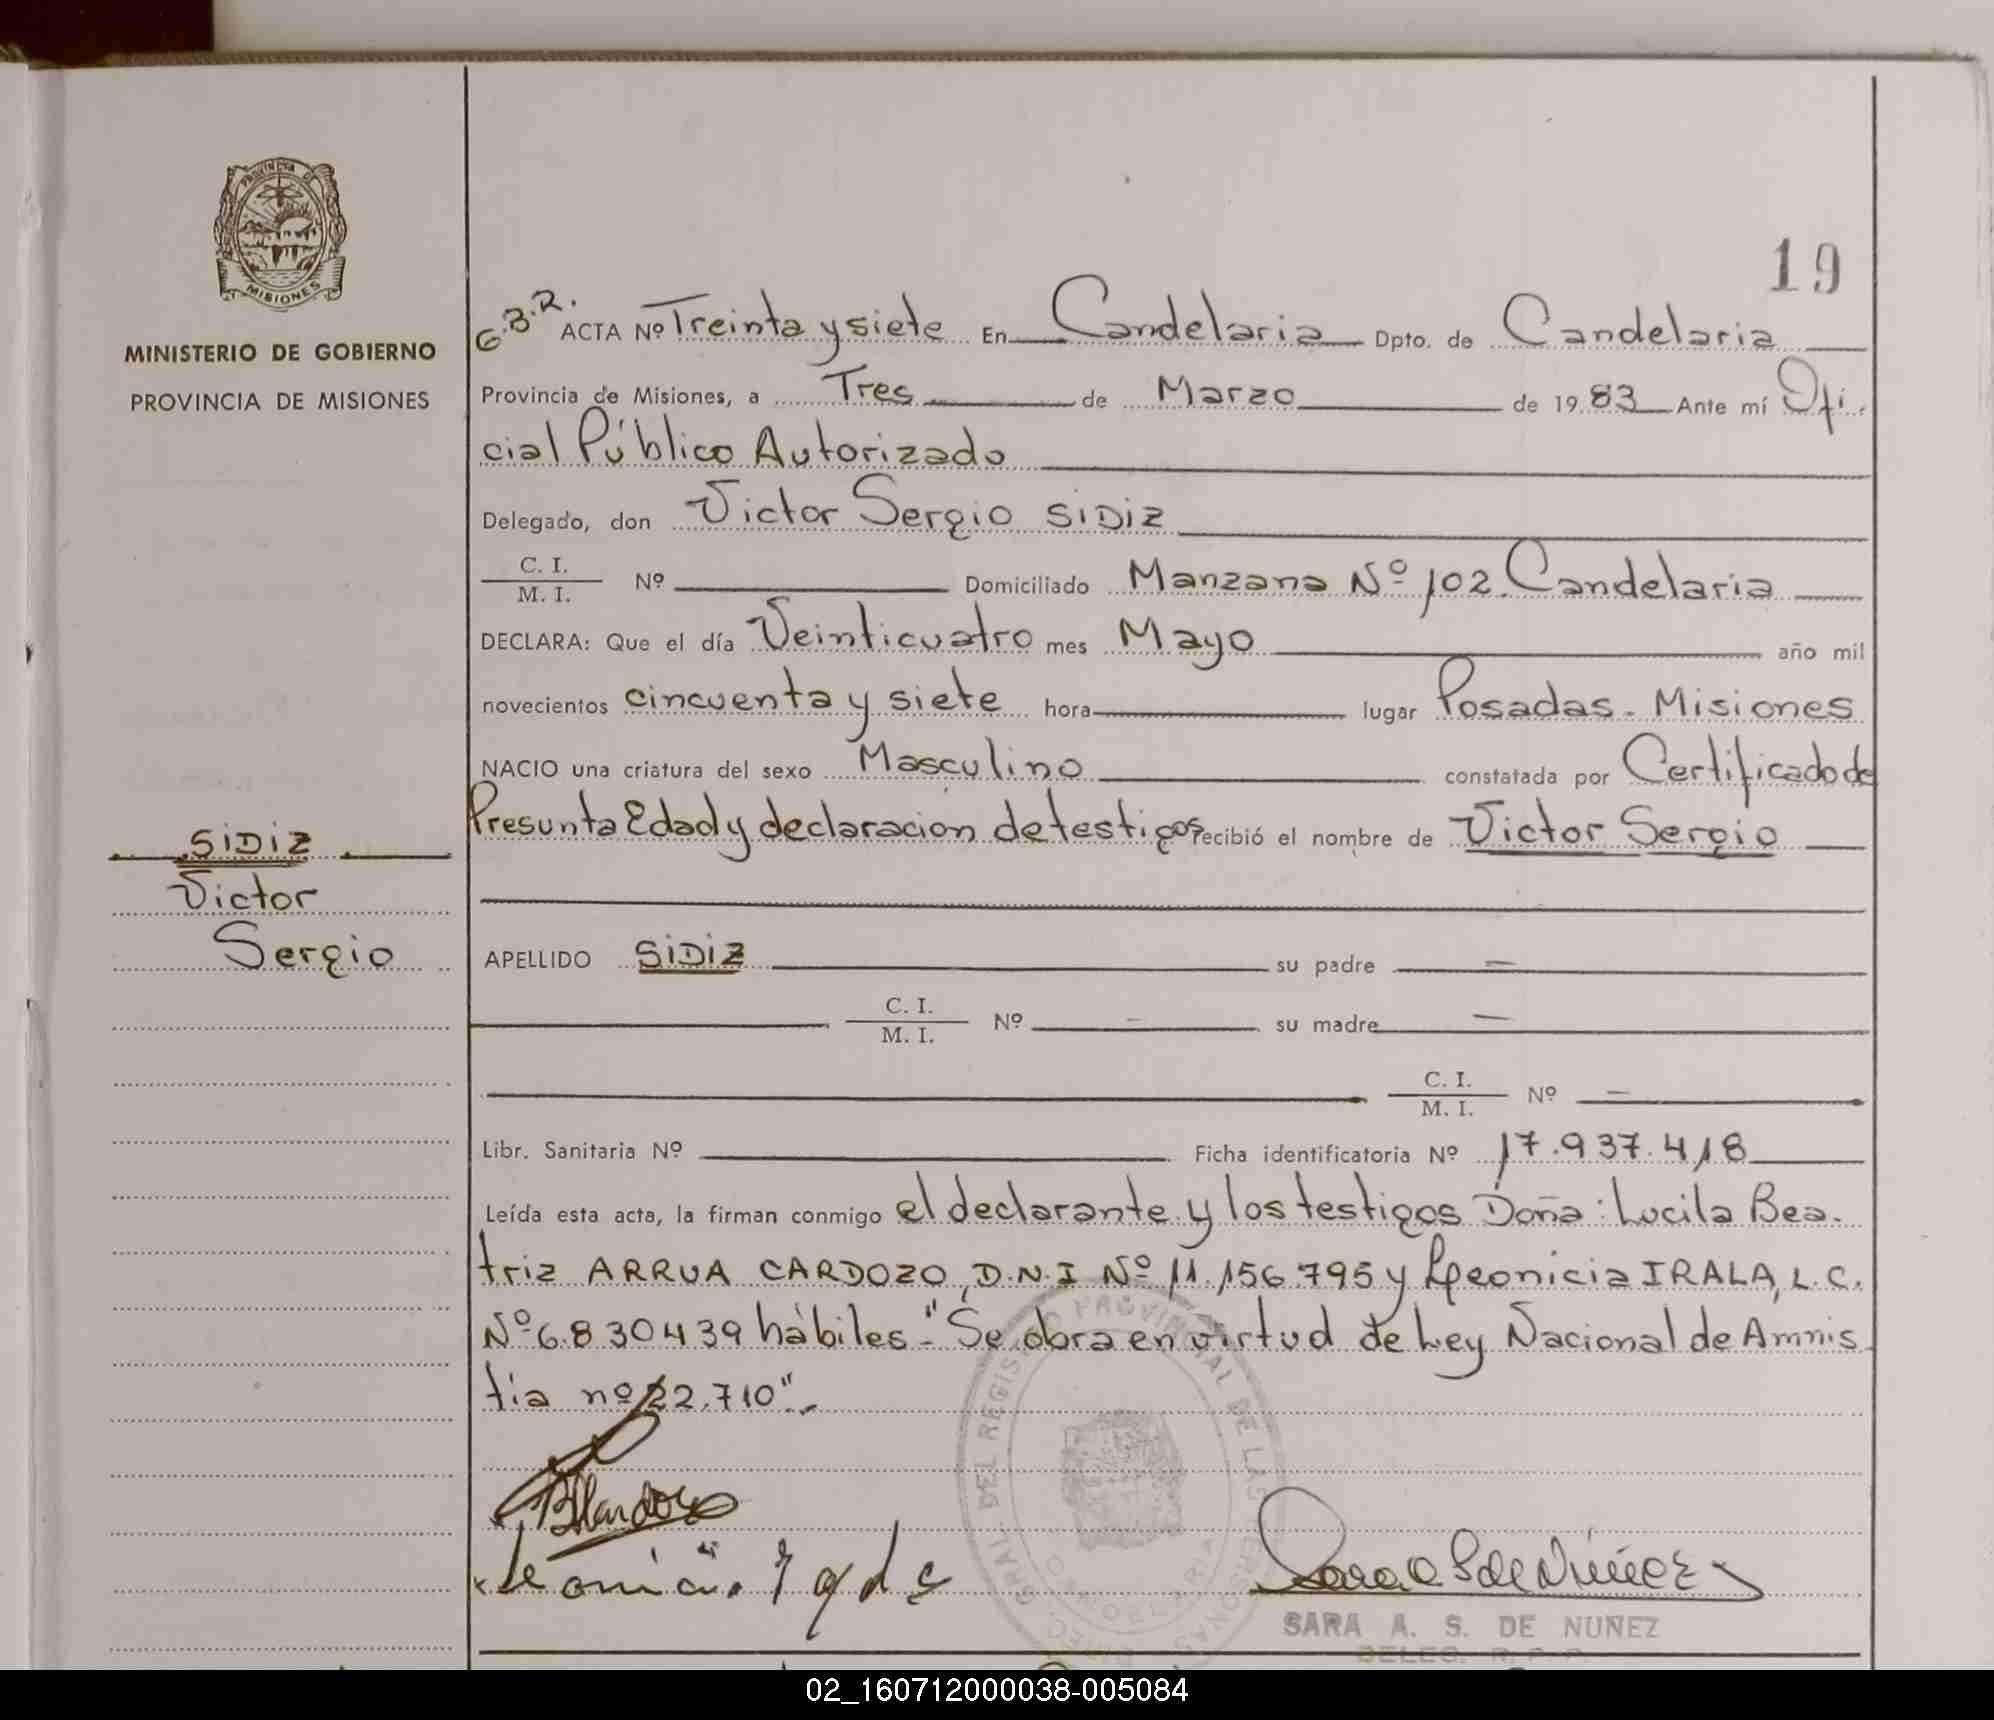 PROVINCIA DE
MISIONES
MINISTERIO DE GOBIERNO
PROVINCIA DE MISIONES
SiDiZ
Victor
Sergio
19
G.B.R. ACTA Nº Treinta y siete En Candelaria Dpto. de Candelaria
Provincia de Misiones, a Tres de Marzo de 1983 Ante mí Ofi.
cial Público Autorizado
Delegado, don Victor Sergio SiDiZ
C. I.
M. I. Nº Domiciliado Manzana Nº 102. Candelaria
DECLARA: Que el día Veinticuatro mes Mayo año mil
novecientos cincuenta y siete hora lugar Posadas. Misiones
NACIO una criatura del sexo Masculino constatada por Certificado de
Presunta Edad y declaración de testigos recibió el nombre de Victor Sergio
APELLIDO SiDiZ su padre —
C. I.
M. I. Nº — su madre —
C. I.
M. I. Nº —
Libr. Sanitaria Nº Ficha identificatoria Nº 17.937.418
Leída esta acta, la firman conmigo el declarante y los testigos Doña: Lucila Bea.
triz ARRUA CARDOZO, D.N.I Nº 11.156.795 y Leonicia IRALA, L.C.
Nº 6.830439 hábiles. "Se obra en virtud de Ley Nacional de Amnis
tia nº 22.710".
GRAL. DEL REGISTRO PROVINCIAL DE LAS PERSONAS
CANDELARIA
SARA A. S. DE NUÑEZ
DELEG. R. P. P.
02_160712000038-005084